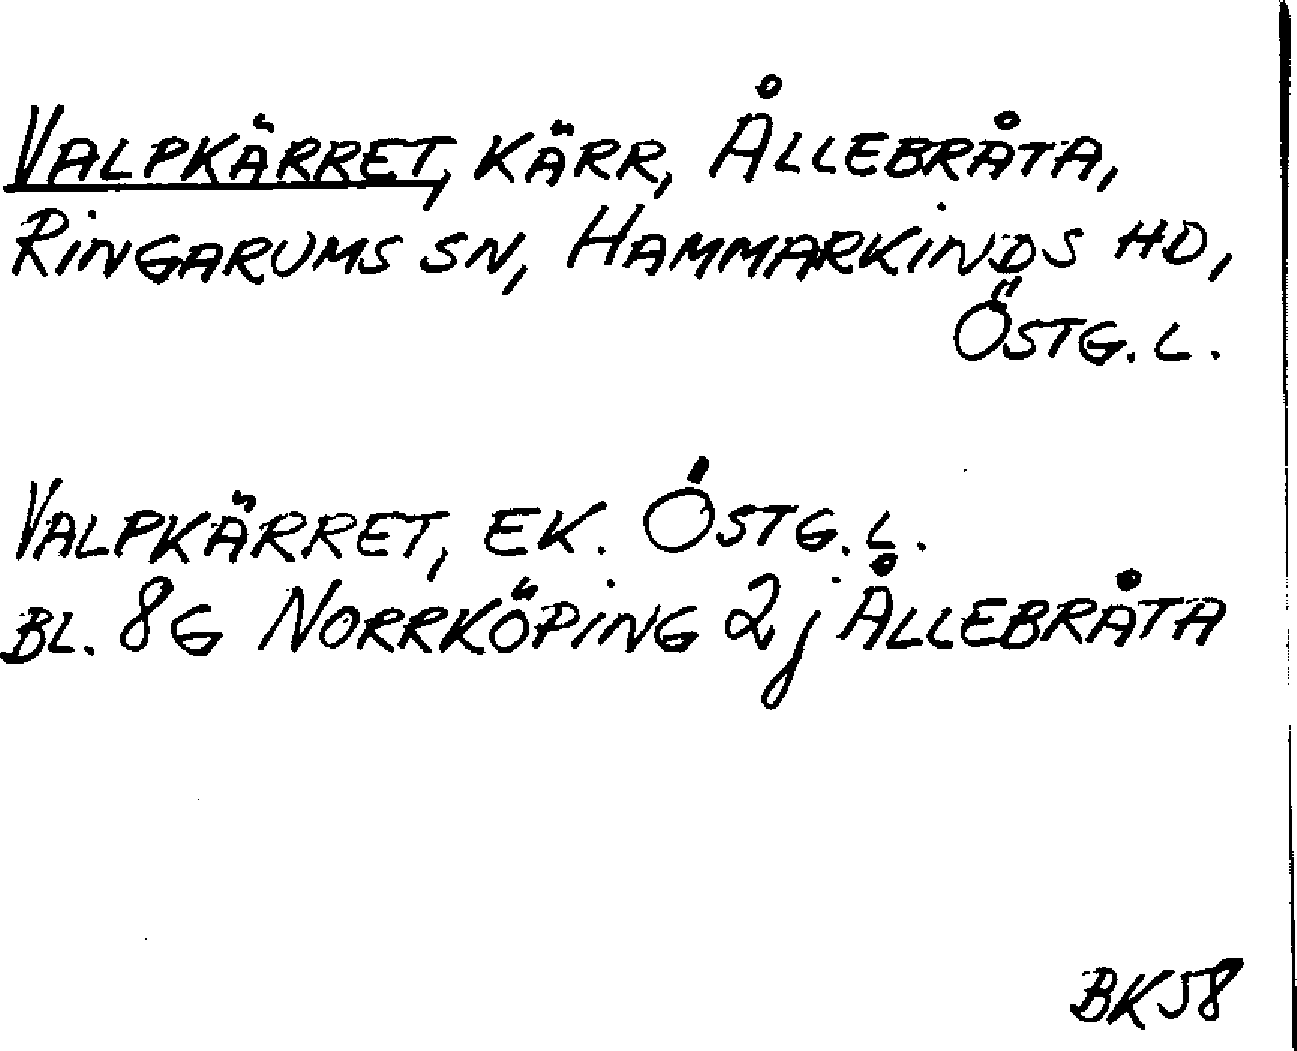 VALPKÄRRET, KÄRR, ÅLLEBRÅTA,
RINGARUMS SN, HAMMARKINDS HD,
ÖSTG. L.
VALPKÄRRET, EK. ÖSTG. L.
BL. 8G NORRKÖPING 2j ÅLLEBRÅTA
BK58